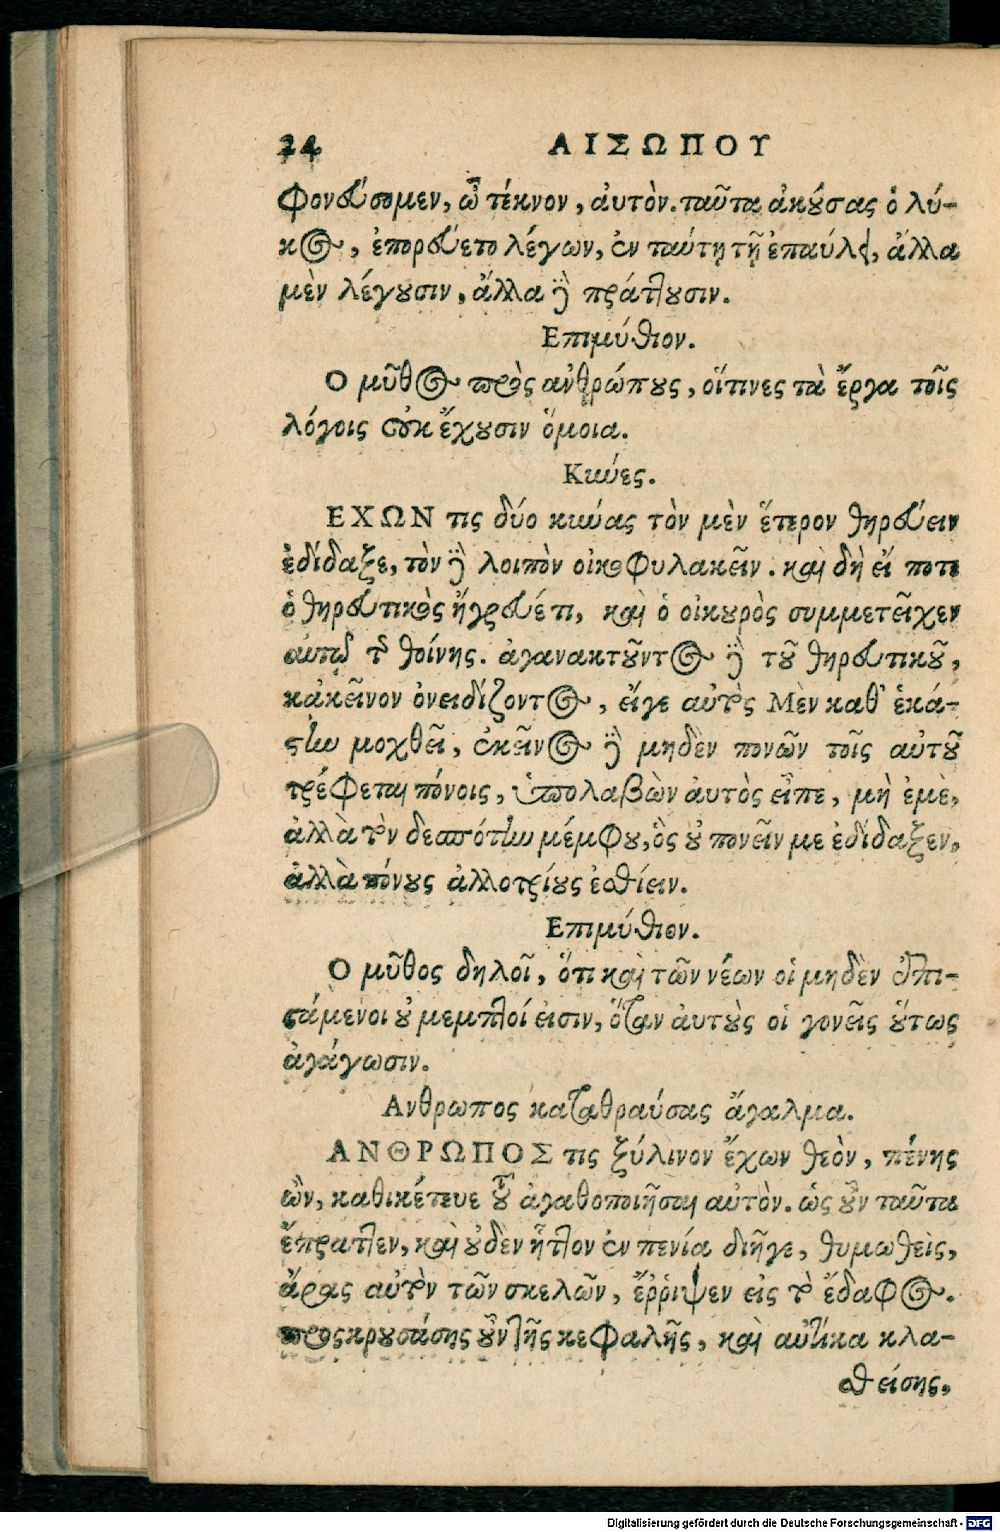 24 ΑΙΣΩΠΟΥ
φονεύσομεν, ὦ τέκνον, ἀυτὸν. ταῦτα ἀκούσας ὁ λύ-
κος, ἐπορεύετο λέγων, ἐν ταύτῃ τῇ ἐπαύλει, ἄλλα
μὲν λέγουσιν, ἄλλα δὲ πράττουσιν.
Επιμύθιον.
Ο μῦθος πρὸς ανθρώπους, οἵτινες τὰ ἔργα τοῖς
λόγοις οὐκ ἔχουσιν ὅμοια.
Κύνες.
ΕΧΩΝ τις δύο κύνας τὸν μὲν ἕτερον θηρεύειν
ἐδίδαξε, τὸν δὲ λοιπὸν οἰκοφυλακεῖν. καὶ δὴ εἴ ποτε
ὁ θηρευτικὸς ἤγρευέ τι, καὶ ὁ οἰκουρὸς συμμετεῖχεν
αὐτῷ τῆς θοίνης. ἀγανακτοῦντος δὲ τοῦ θηρευτικοῦ,
κἀκεῖνον ὀνειδίζοντος, εἴγε αὐτὸς Μὲν καθ' ἑκά-
στην μοχθεῖ, ἐκεῖνος δὲ μηδὲν πονῶν τοῖς αὐτοῦ
τρέφεται πόνοις, ὑπολαβὼν ἀυτὸς εἶπε, μὴ ἐμὲ,
ἀλλὰ τὸν δεσπότην μέμφου, ὃς οὐ πονεῖν με ἐδίδαξεν,
ἀλλὰ πόνους ἀλλοτρίους ἐσθίειν.
Επιμύθιον.
Ο μῦθος δηλοῖ, ὅτι καὶ τῶν νέων οἱ μηδὲν ἐπι-
στάμενοι οὐ μεμπτοί εἰσιν, ὅταν ἀυτοὺς οἱ γονεῖς οὕτως
ἀγάγωσιν.
Ανθρωπος καταθραύσας ἄγαλμα.
ΑΝΘΡΩΠΟΣ τις ξύλινον ἔχων θεὸν, πένης
ὢν, καθικέτευε τοῦ ἀγαθοποιῆσαι αὐτὸν. ὡς οὖν ταῦτα
ἔπραττεν, καὶ οὐδὲν ἧττον ἐν πενίᾳ διῆγε, θυμωθεὶς,
ἄρας αὐτὸν τῶν σκελῶν, ἔῤῥιψεν εἰς τὸ ἔδαφος.
προςκρουσάσης οὖν τῆς κεφαλῆς, καὶ αὐτίκα κλα-
σθείσης,
Digitalisierung gefördert durch die Deutsche Forschungsgemeinschaft - DFG